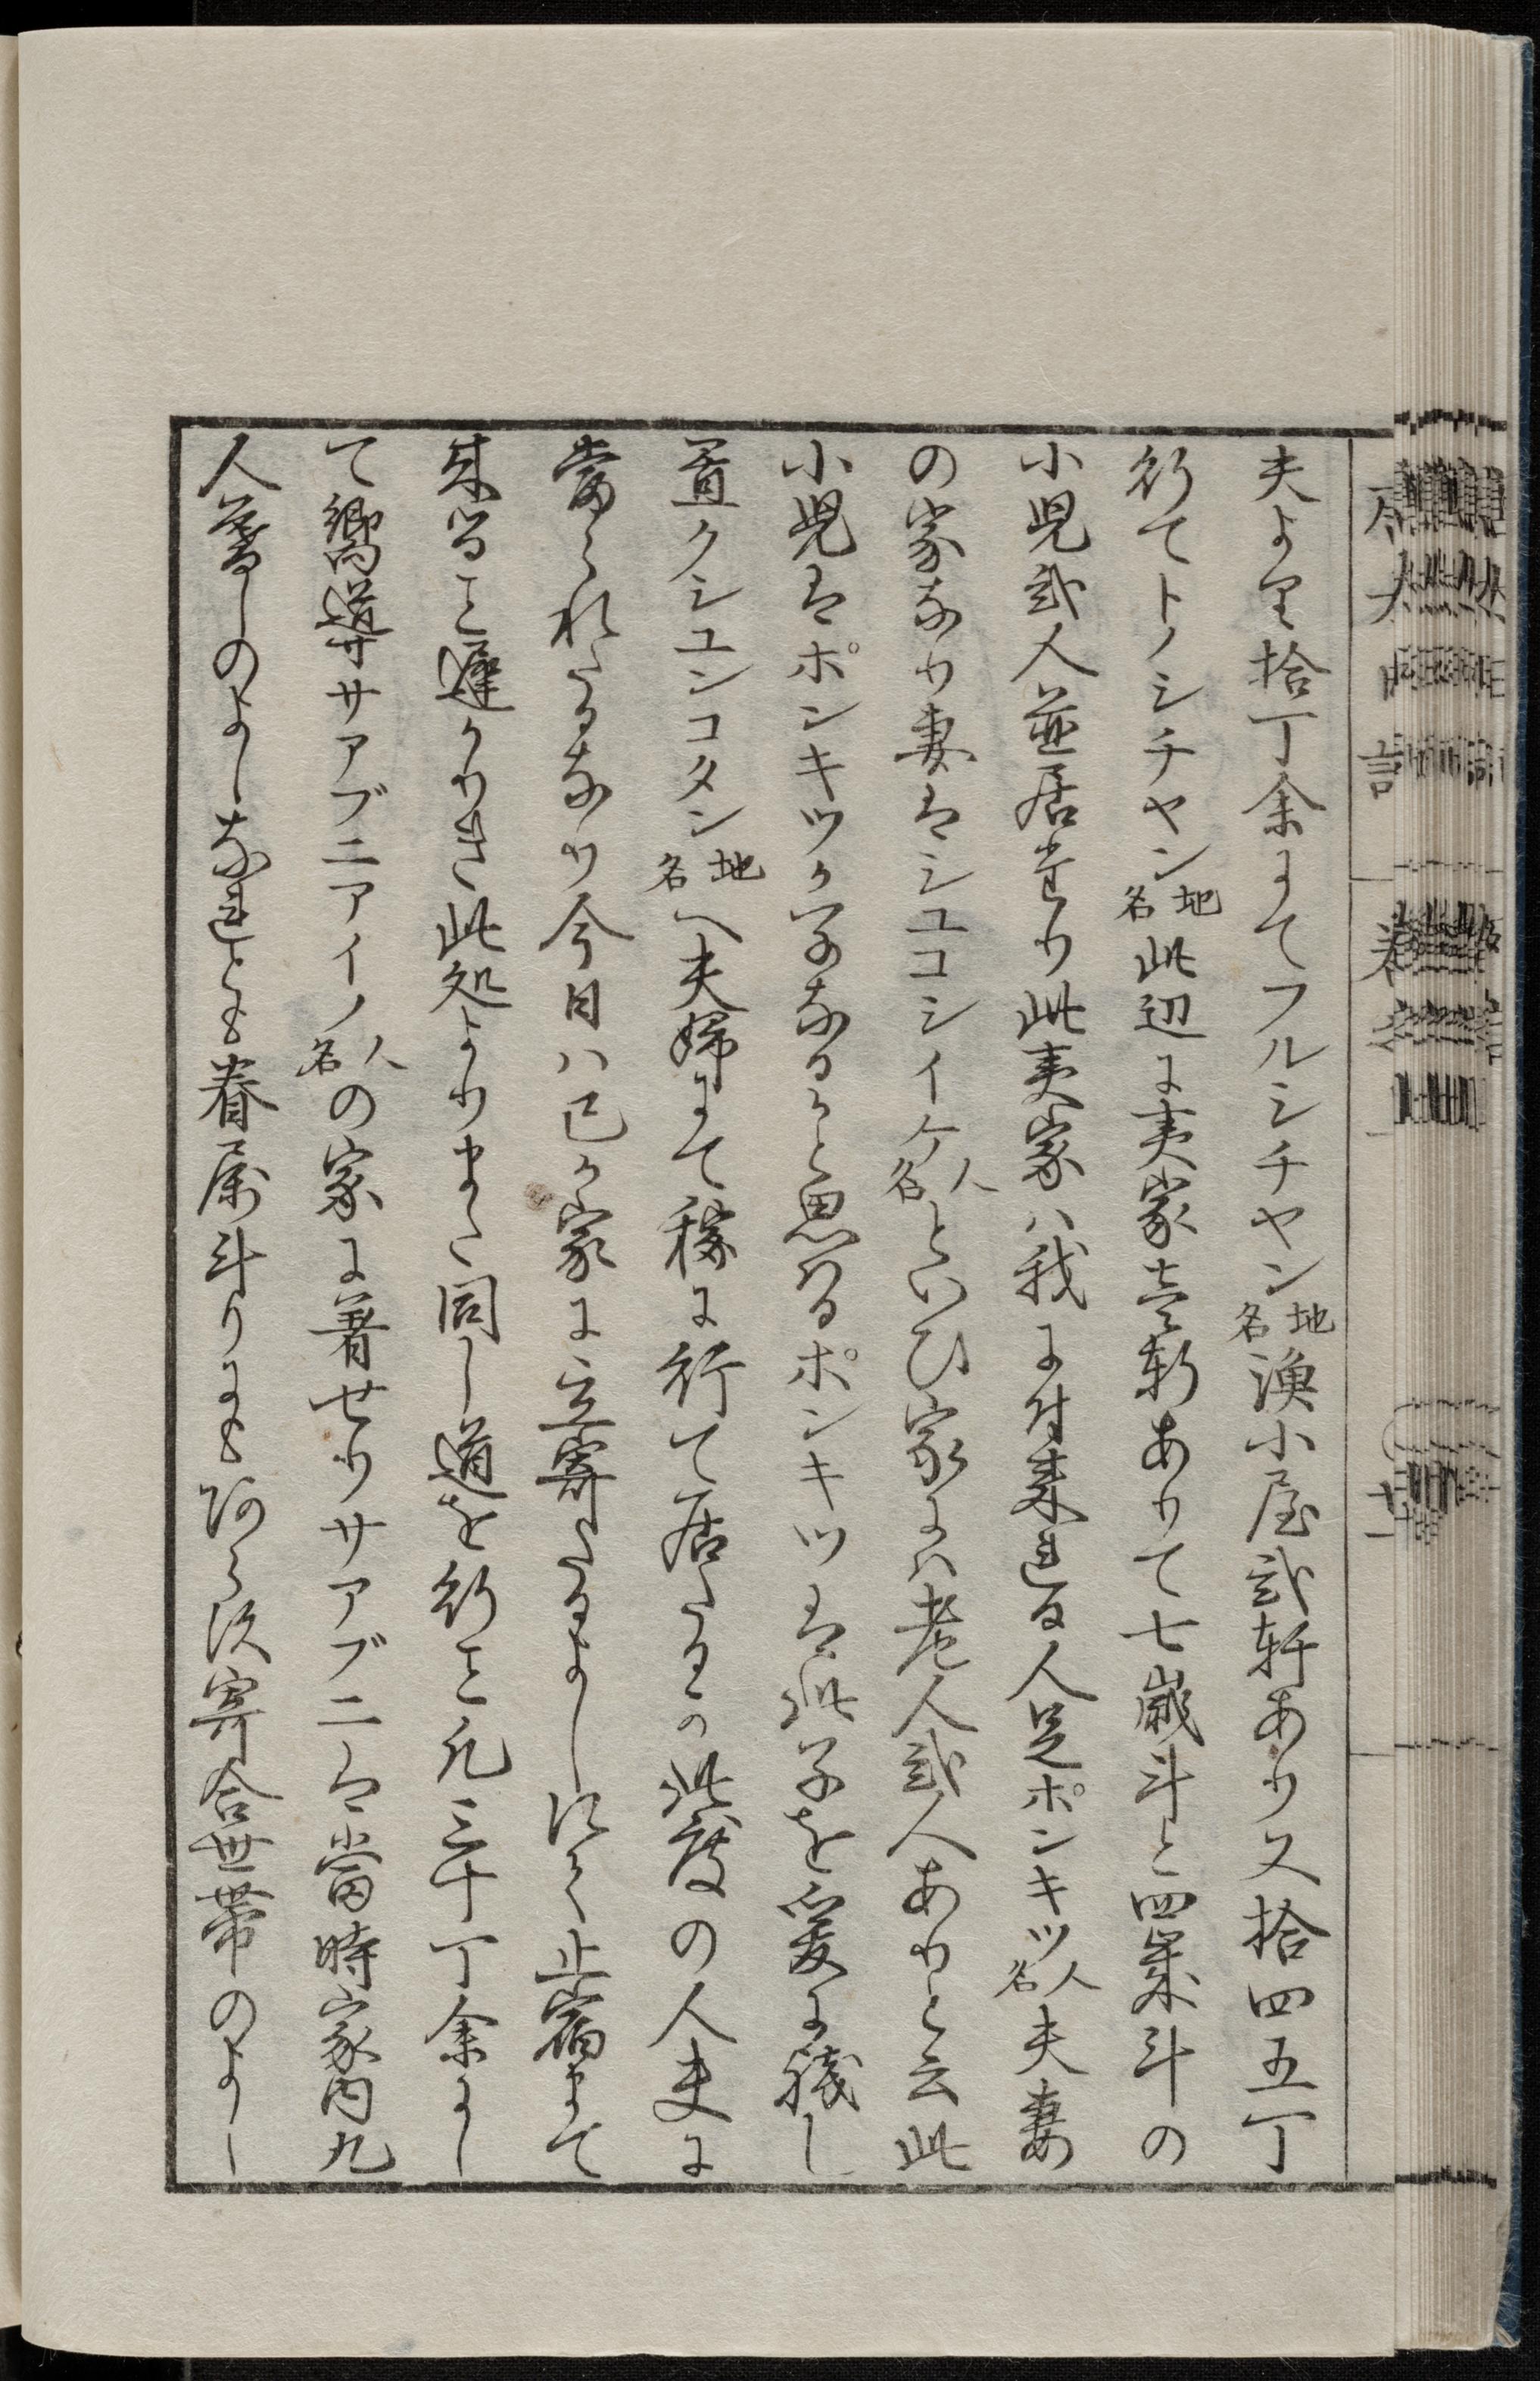 夫より拾丁余にてフルシチヤン地名漁小屋弐軒あり又拾四五丁
行てトノシチヤン地名此辺に夷家壱軒ありて七歳斗と四歳斗の
小児弐人並居たり此夷家ハ我に付来れる人足ポンキツ人名夫妻
の家なり妻はシユコシイケ人名といひ家にハ老人弐人ありと云此
小児はポンキツか子なるかと思へるポンキツは此子を爰に残し
置クシユンコタン地名へ夫婦にて稼に行て居たるか此度の人夫に
当られたるなり今日ハ己か家に立寄たるよしにて止宿まて
来ることも遅かりき此処よりまた同し道を行こと凡三十丁余にし
て嚮導サアブニアイノ人名の家に着せりサアブニは当時家内九
人暮しのよしなれとも眷属斗りにもあらす寄合世帯のよし